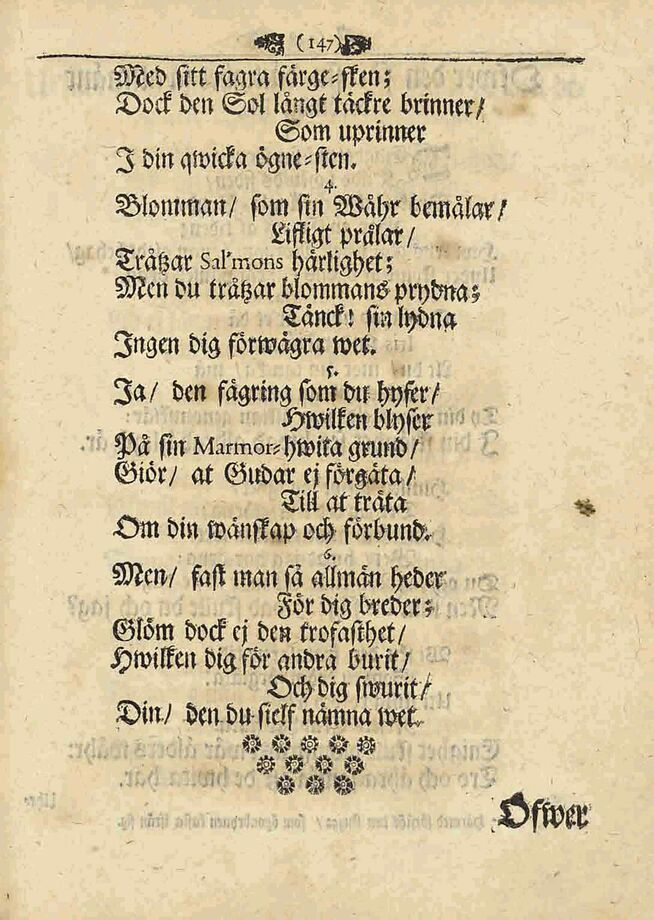 (147)
Med sitt fagra färge-sken;
Dock den Sol långt täckre brinner/
Som uprinner
I din qwicka ögne-sten.
4.
Blomman/ som sin Wåhr bemålar/
Lifligt prålar/
Tråtzar Sal'mons härlighet;
Men du tråtzar blommans prydna;
Tänck! sin lydna
Ingen dig förwägra wet.
5.
Ja/ den fägring som du hyser/
Hwilken blyser
På sin Marmor-hwita grund/
Giör/ at Gudar ej förgäta/
Till at träta
Om din wänskap och förbund.
6.
Men/ fast man så allmän heder
För dig breder;
Glöm dock ej den trofasthet/
Hwilken dig för andra burit/
Och dig swurit/
Din/ den du sielf nämna wet.
Öfwer